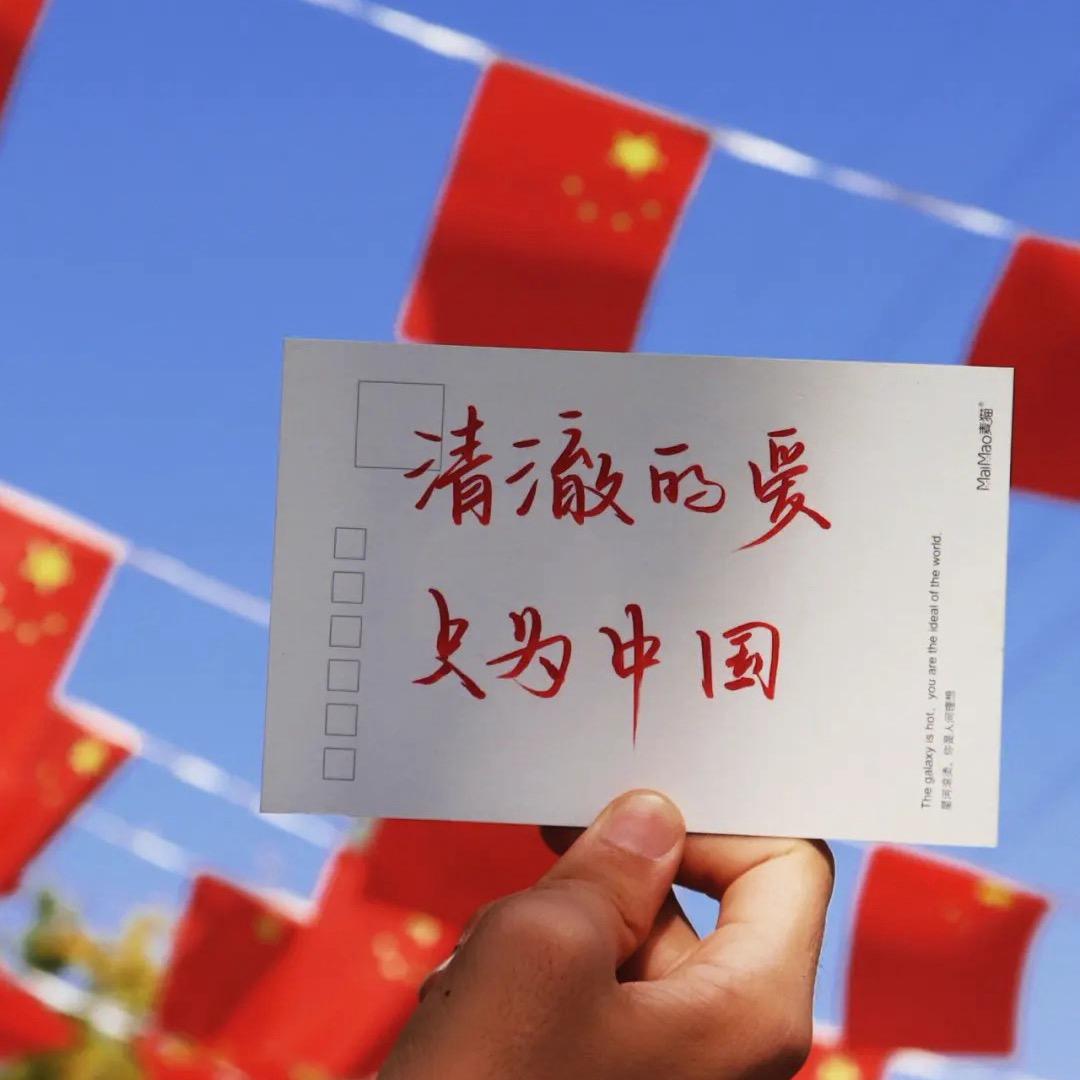 清澈的爱
只为中国
MaiMao麦猫®
The galaxy is hot, you are the ideal of the world.
星河滚烫，你是人间理想